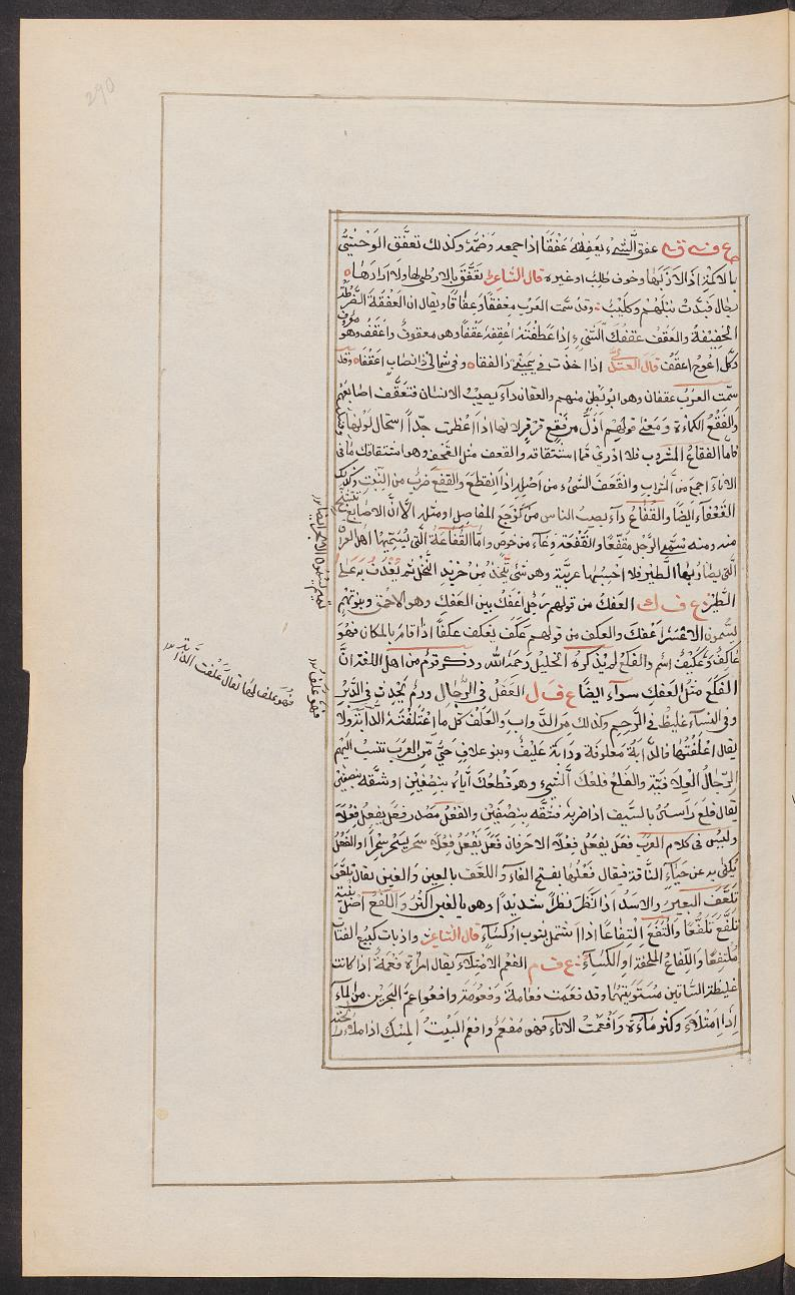 290
ع ف ق عفق الشيء يعفقه عَفْقًا اذا جمعه وضمه وكذلك تعفّق الوحشيُّ
بالاكمة اذا لاذ بها وخوف طلب او غيره قال الشاعر تَعَفَّقَ بالارطى لها وارادها
رجال فبذّت نبلهم وكليبُ وقد سمت العرب معفقًا وعفاقًا ويقال ان العفقة
الخفيفة والعقف عقفك الشيء اذا عطفته اعقفه عقفًا وهو معقوف واعقف وهو
وكل اعوج اعقف قال اذا اخذت في يميني ذا القفا وفي شمالي ذا نصاب اعقفا وقد
سمّت العرب عقفان وهو ابو بطن منهم والعقاف داء يصيب الانسان فتعقّف اصابعهم
والفقع الكماءة ومعنى قولهم اذلّ من فقع قرقر لانها اذا عظرت جدّا استحال لونها
فاما الفقاع المشروب فلا ادري ممّا اشتقاقه والقعف مثل القحف وهو اشتفافك ما في
الاناء اجمع من التراب وانقعف الشيء من اصله اذا انقطع والقفع ضرب من النبت وكذلك
القفعاء ايضًا والقُفّاع داء يصيب الناس من كوجع المفاصل او مثله الا ان الاصابع
منه ومنه سمّي الرجل مقفّعا والقفعة وعاء من خوص واما القفّاعة التي يسمّيها اهل العراق
التي يصاد بها الطير فلا احسبها عربيّة وهو شيء يتّخذ من جريد النخل ثم يُغدف به على
الطير ع ف ك العفك من قولهم رجل اعفك بين العفك وهو الاحمق وبنو تميم
يسمّون الاعسر اعفك والعكف من قولهم عكف يعكف عكفًا اذا اقام بالمكان فهو
عاكف وعُكيف اسم والفلع لم يذكره الخليل رحمه الله وذكر قوم من اهل اللغة ان
الفكع مثل العفك سواء ايضًا ع ف ل العفل في الرجال ورم يحدث في الدبر
وفي النساء غليظ في الرحم وكذلك من الدواب والعلف كل ما اعتلفته الدابة ولا
يقال اعلفتها فالدابة معلوفة ودابة عليف وبنو علاف حيّ من العرب تنسب اليهم
الرحال العلافيّة والفلع فلعك الشيء وهو قطعك اياه بنصفين او شقّه بنصفين
يقال فلع رأسه بالسيف اذا ضربه فشقّه بنصفين والفعل مصدر فعل يفعل فعلًا
وليس في كلام العرب فعل يفعل فعلًا الا حرفان فعل يفعل فعلًا سحر يسحر سحرًا والفعل
يكنى به عن حياء الناقة فيقال فعلها بفتح الفاء واللعف بالعين والغين يقال
تلعّف البعير والاسد اذا نظر نظرًا شديدًا وهو بالغين اكثر واللفع اصل بنية
تلفّع تلفّعًا والتفع التفاعًا اذا اشتمل بثوب او كساء قال الشاعر واذ بات كميع الفتاة
ملتفعًا واللفاع الملحفة او الكساء ع ف م الفعم الامتلاء يقال امرأة فعمة اذا كانت
غليظة الساقين مستويتهما وقد فعمت فعامة وفعومة وافعوعم البحر من الماء
اذا امتلاء وكثر ماءه وافعمت الاناء فهو مفعم وافعم البيت المسك اذا ملاءه
فهو علف
فهو علف لها تقال علفت الدابة